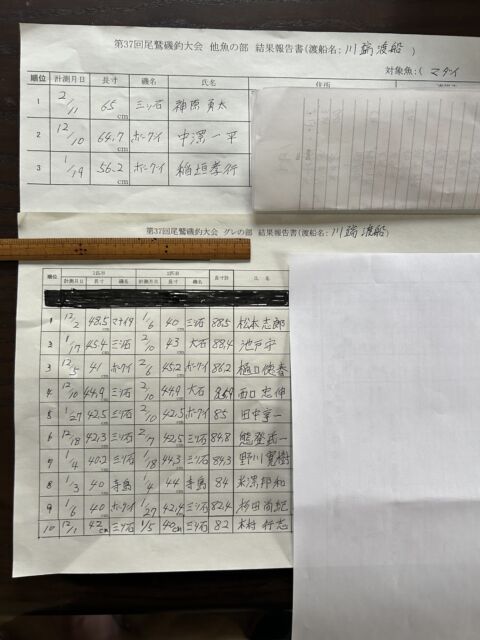 第37回尾鷲磯釣大会 他魚の部 結果報告書(渡船名: 川端渡船 )
対象魚:( マダイ
順位 計測月日 長寸 磯名 氏名 住所
1 2/11 65cm 三ツ石 神原 勇太
2 12/10 64.7cm ホーケーイ 中澤 一平
3 1/19 56.2cm ホーケーイ 稲垣孝行
第37回尾鷲磯釣大会 グレの部 結果報告書(渡船名: 川端渡船)
順位 1匹目 2匹目 長寸計 氏 名
計測月日 長寸 磯名 計測月日 長寸 磯名
1 12/2 48.5cm マナイタ 1/6 40cm 三ツ石 88.5 松本志郎
2 1/17 45.4cm 三ツ石 2/10 43cm 大石 88.4 池戸守
3 12/5 41cm ホーケーイ 2/6 45.2cm ホーケーイ 86.2 樋口徳春
4 12/10 44.9cm 三ツ石 2/10 44.9cm 大石 西口忠伸
5 1/27 42.5cm 三ツ石 2/10 42.5cm ホーケーイ 85 田中幸一
6 12/18 42.3cm 三ツ石 2/7 42.5cm 三ツ石 84.8 熊登岳一
7 1/4 40.2cm 三ツ石 1/18 44.3cm 三ツ石 84.3 野川寛樹
8 1/3 40cm 寺島 1/4 44cm 寺島 84 米澤邦和
9 1/6 40cm ホーケーイ 1/27 42.4cm 三ツ石 82.4 杉田尚紀
10 12/1 42cm 三ツ石 1/5 40cm 三ツ石 82 木村行志